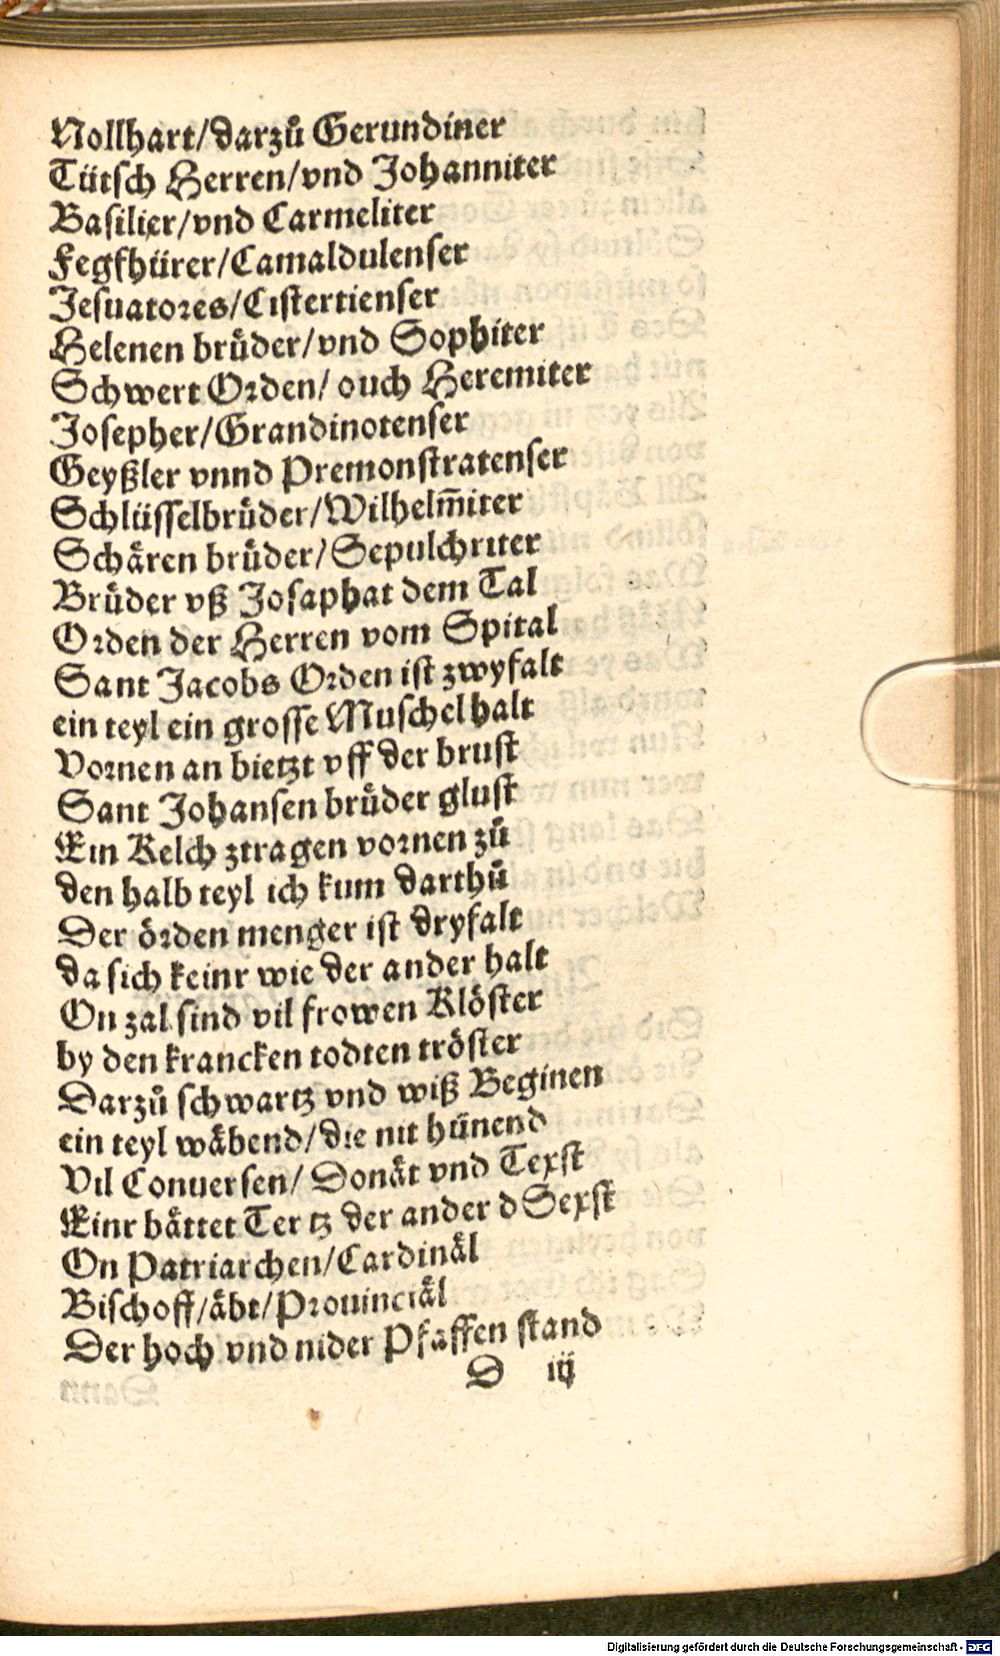 Nollhart/darzů Gerundiner
Tütsch Herren/vnd Johanniter
Basilier/vnd Carmeliter
Fegfhürer/Camaldulenser
Jesuatores/Cistertienser
Helenen brůder/vnd Sophiter
Schwert Orden/ ouch Heremiter
Josepher/Grandinotenser
Geyßler vnnd Premonstratenser
Schlüsselbrůder/Wilhelm̄iter
Schären brůder/Sepulchriter
Brůder vß Josaphat dem Tal
Orden der Herren vom Spital
Sant Jacobs Orden ist zwyfalt
ein teyl ein grosse Muschel halt
Vornen an bietzt vff der brust
Sant Johansen brůder glust
Ein Kelch ztragen vornen zů
den halb teyl ich kum darthů
Der örden menger ist dryfalt
da sich keinr wie der ander halt
On zal sind vil frowen Klöster
by den krancken todten tröster
Darzů schwartz vnd wiß Beginen
ein teyl wäbend/die nit hünend
Vil Conuersen/ Donät vnd Texst
Einr bättet Tertz der ander d Sexst
On Patriarchen/Cardinäl
Bischoff/äbt/Prouinciäl
Der hoch vnd nider Pfaffen stand
D iij
Digitalisierung gefördert durch die Deutsche Forschungsgemeinschaft - DFG